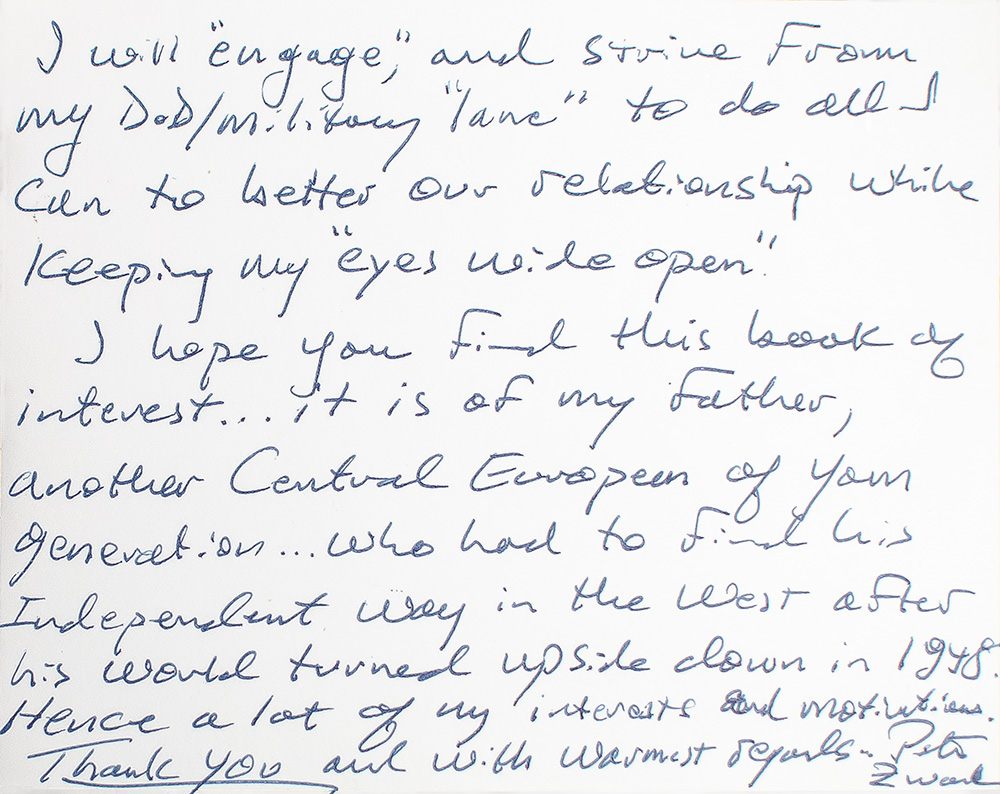 I will "engage", and strive From
my DoD/military "lane" to do all I
can to better our relationship while
Keeping my "eyes wide open".
I hope you find this book of
interest... it is of my Father,
another Central European of your
generation... who had to find his
Independent way in the West after
his world turned upside down in 1948.
Hence a lot of my interests and motivations.
Thank you and with warmest regards - Peter
Zwack